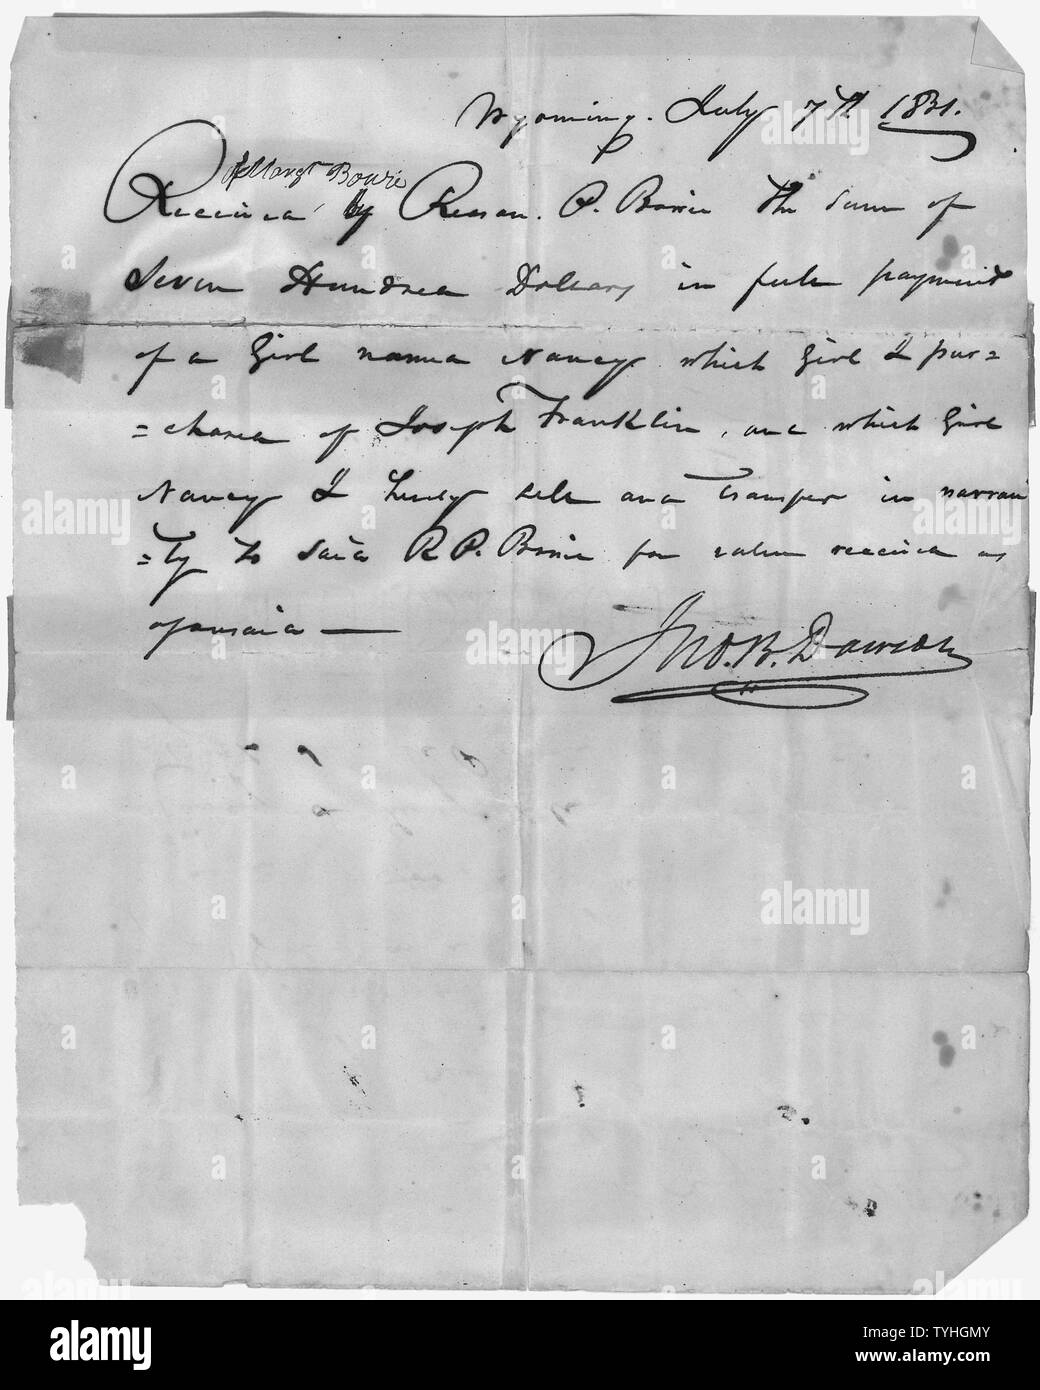 Wyoming. July 7th 1831.
of Margt Bowie
Received by Reason. P. Bowie the sum of
Seven Hundred Dollars in full payment
of a Girl named Nancy which Girl I pur=
=chased of Joseph Franklin, and which Girl
Nancy I hereby sell and transfer in warran
=ty to said R P. Bowie for value received as
aforesaid —
Jno. B. Dawson
alamy
Image ID: TYHGMY
www.alamy.com